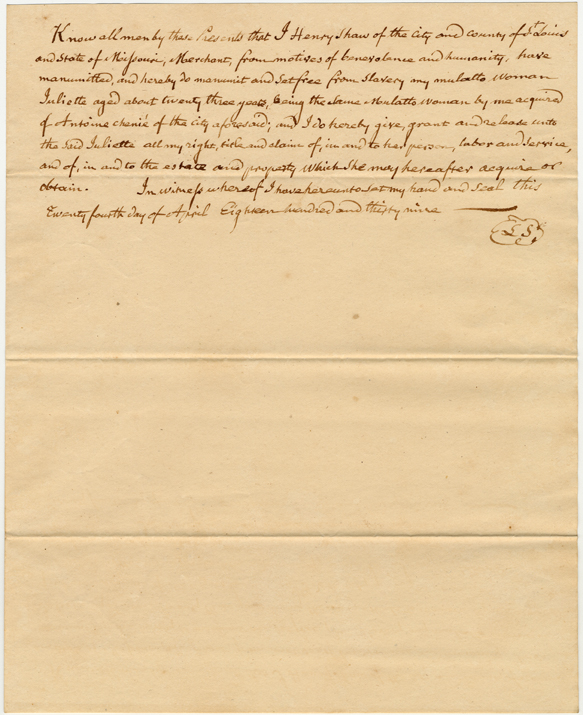 Know all men by these Presents that I Henry Shaw of the City and County of St Louis
and State of Missouri, Merchant, from motives of benevolence and humanity, have
manumitted, and hereby do manumit and set free from slavery my mulatto woman
Juliette aged about twenty three years, being the same Mulatto woman by me acquired
of Antoine Chenié of the City aforesaid; and I do hereby give, grant and release unto
the said Juliette all my right, title and claim of, in and to her person, labor and service,
and of, in and to the estate and property which she may hereafter acquire or
obtain. In witness whereof I have hereunto set my hand and seal this
Twenty fourth day of April Eighteen hundred and thirty nine
L S